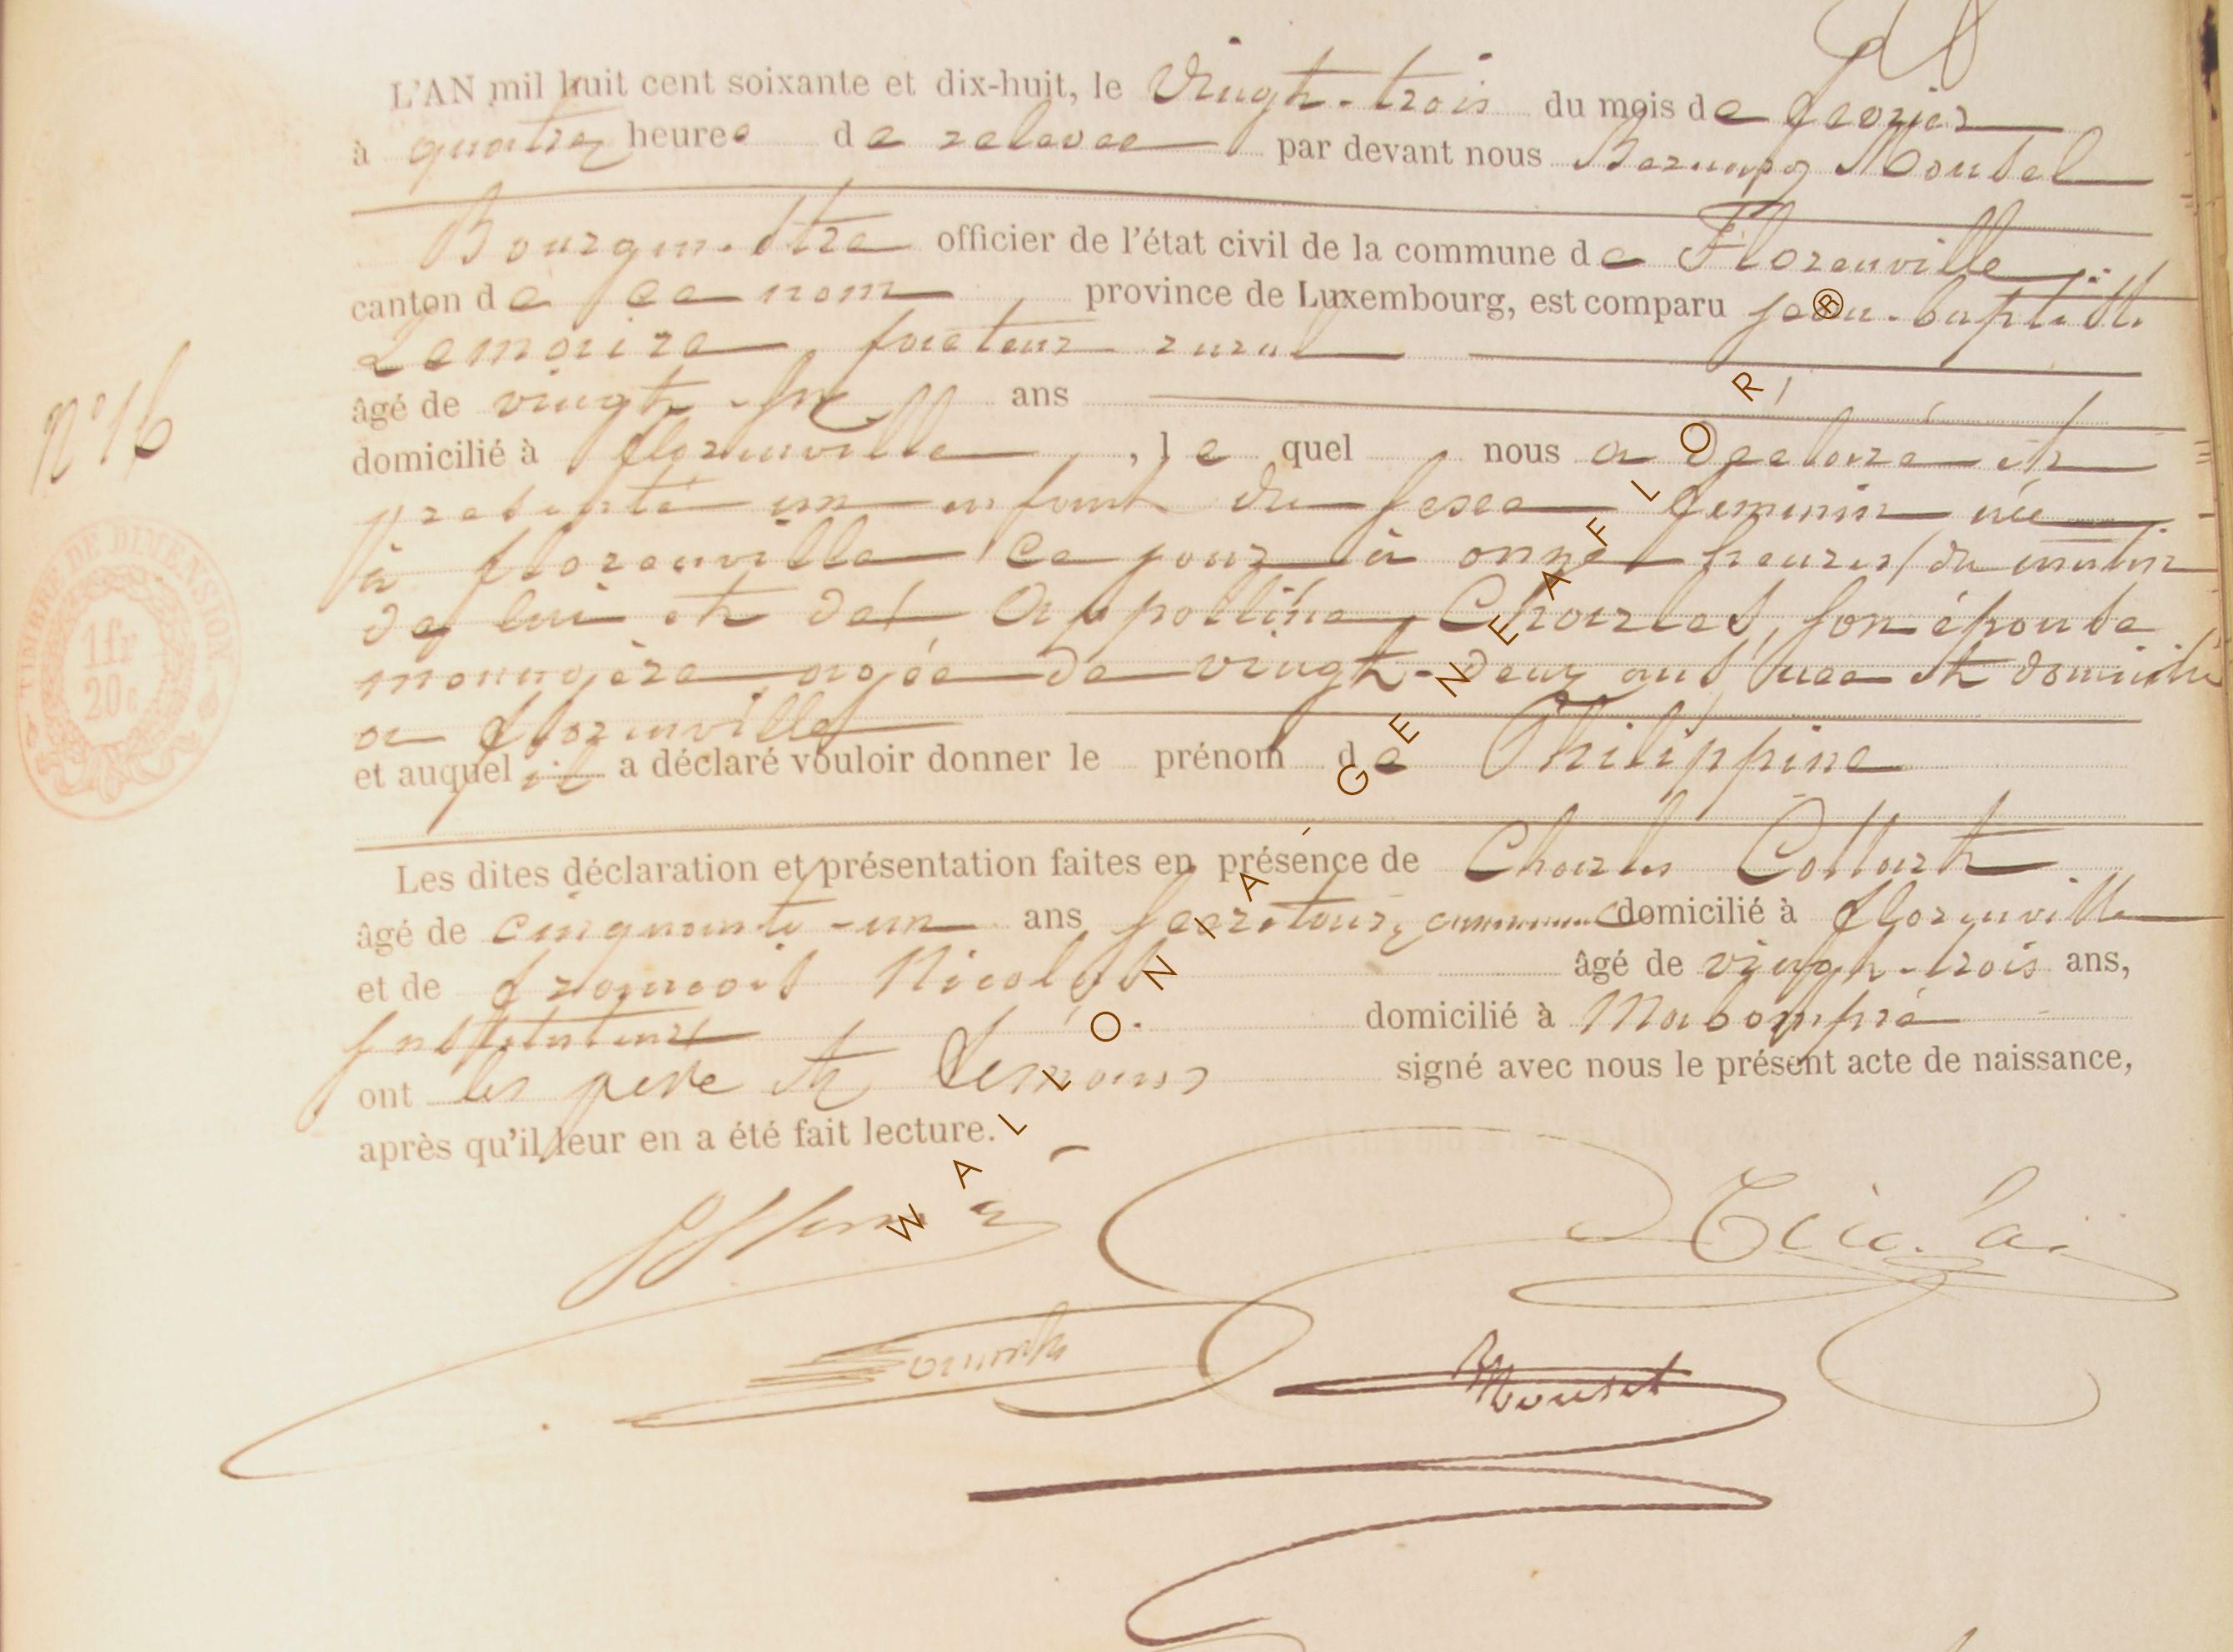 L'AN mil huit cent soixante et dix-huit, le vingt-trois du mois de fevrier
à quatre heures de relevee par devant nous Bernard Mousel
Bourgmestre officier de l'état civil de la commune de Florenville
canton de ce nom, province de Luxembourg, est comparu jean-baptiste
Lemaire, facteur rural
âgé de vingt-six ans
domicilié à florenville, le quel nous a déclaré et
présenté un enfant du sexe feminin née
à florenville ce jour à onze heures du matin
de lui et de Appolline Charles, son épouse
menagère agée de vingt-deux ans née et domicilié
a florenville
et auquel il a déclaré vouloir donner le prénom de Philippine
Les dites déclaration et présentation faites en présence de Charles Collart
âgé de cinquante-un ans secretaire communal domicilié à florenville
et de françois Nicolas âgé de vingt-trois ans,
Instituteur domicilié à Mabompré
ont les pere et temoins signé avec nous le présent acte de naissance,
après qu'il leur en a été fait lecture.
n° 16
TIMBRE DE DIMENSION
1 fr
20 c
WALLONIA - GENEAFLOR ®